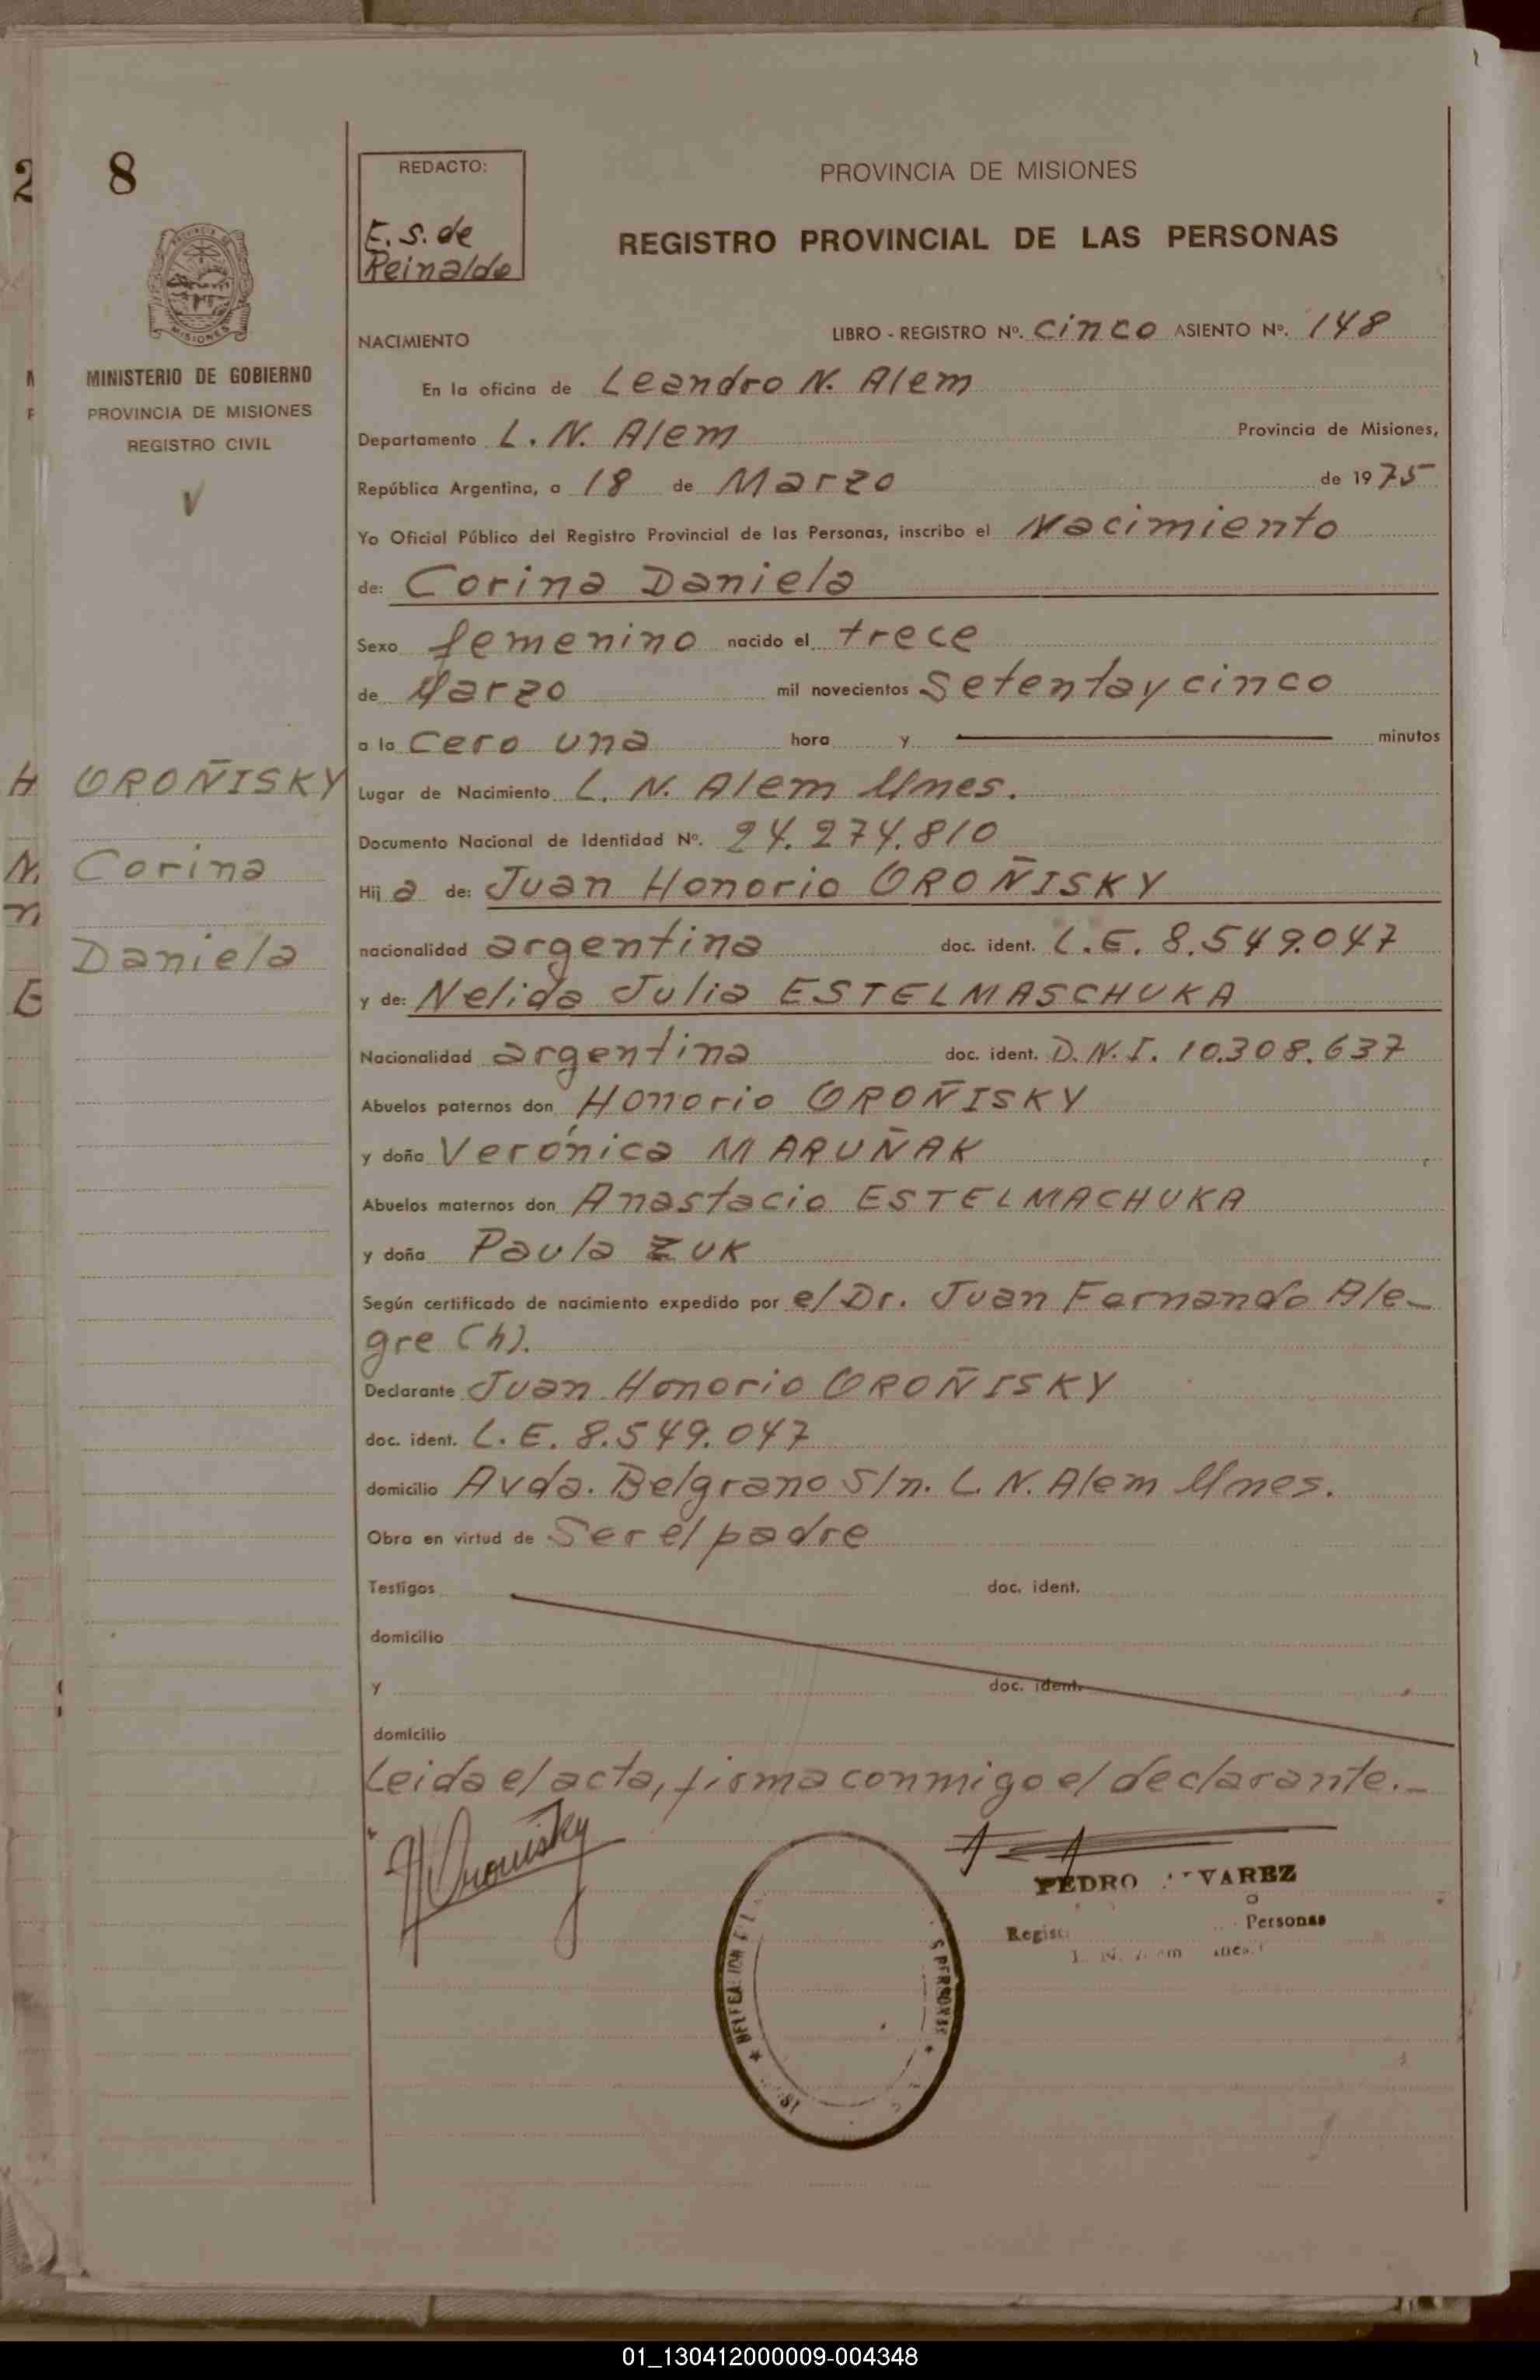 8
REDACTO:
E. S. de
Reinaldo
PROVINCIA DE MISIONES
REGISTRO PROVINCIAL DE LAS PERSONAS
MISIONES
MINISTERIO DE GOBIERNO
PROVINCIA DE MISIONES
REGISTRO CIVIL
NACIMIENTO LIBRO - REGISTRO Nº. Cinco ASIENTO Nº. 148
En la oficina de Leandro N. Alem
Departamento L. N. Alem Provincia de Misiones,
República Argentina, a 18 de Marzo de 1975
Yo Oficial Público del Registro Provincial de las Personas, inscribo el Nacimiento
de: Corina Daniela
Sexo femenino nacido el trece
de Marzo mil novecientos Setenta y cinco
a la cero una hora y minutos
OROÑISKY
Corina
Daniela
Lugar de Nacimiento L. N. Alem Mnes.
Documento Nacional de Identidad Nº. 24.274.810
Hij a de: Juan Honorio OROÑISKY
nacionalidad argentina doc. ident. L.E. 8.549.047
y de: Nelida Julia ESTELMASCHUKA
Nacionalidad argentina doc. ident. D.N.I. 10.308.637
Abuelos paternos don Honorio OROÑISKY
y doña Verónica MARUÑAK
Abuelos maternos don Anastacio ESTELMACHUKA
y doña Paula ZUK
Según certificado de nacimiento expedido por el Dr. Juan Fernando Ale-
gre (h).
Declarante Juan Honorio OROÑISKY
doc. ident. L. E. 8.549.047
domicilio Avda. Belgrano S/n. L. N. Alem Mnes.
Obra en virtud de Ser el padre
Testigos doc. ident.
domicilio
y doc. ident.
domicilio
Leida el acta, firma conmigo el declarante.-
PEDRO VAREZ
Personas
01_130412000009-004348